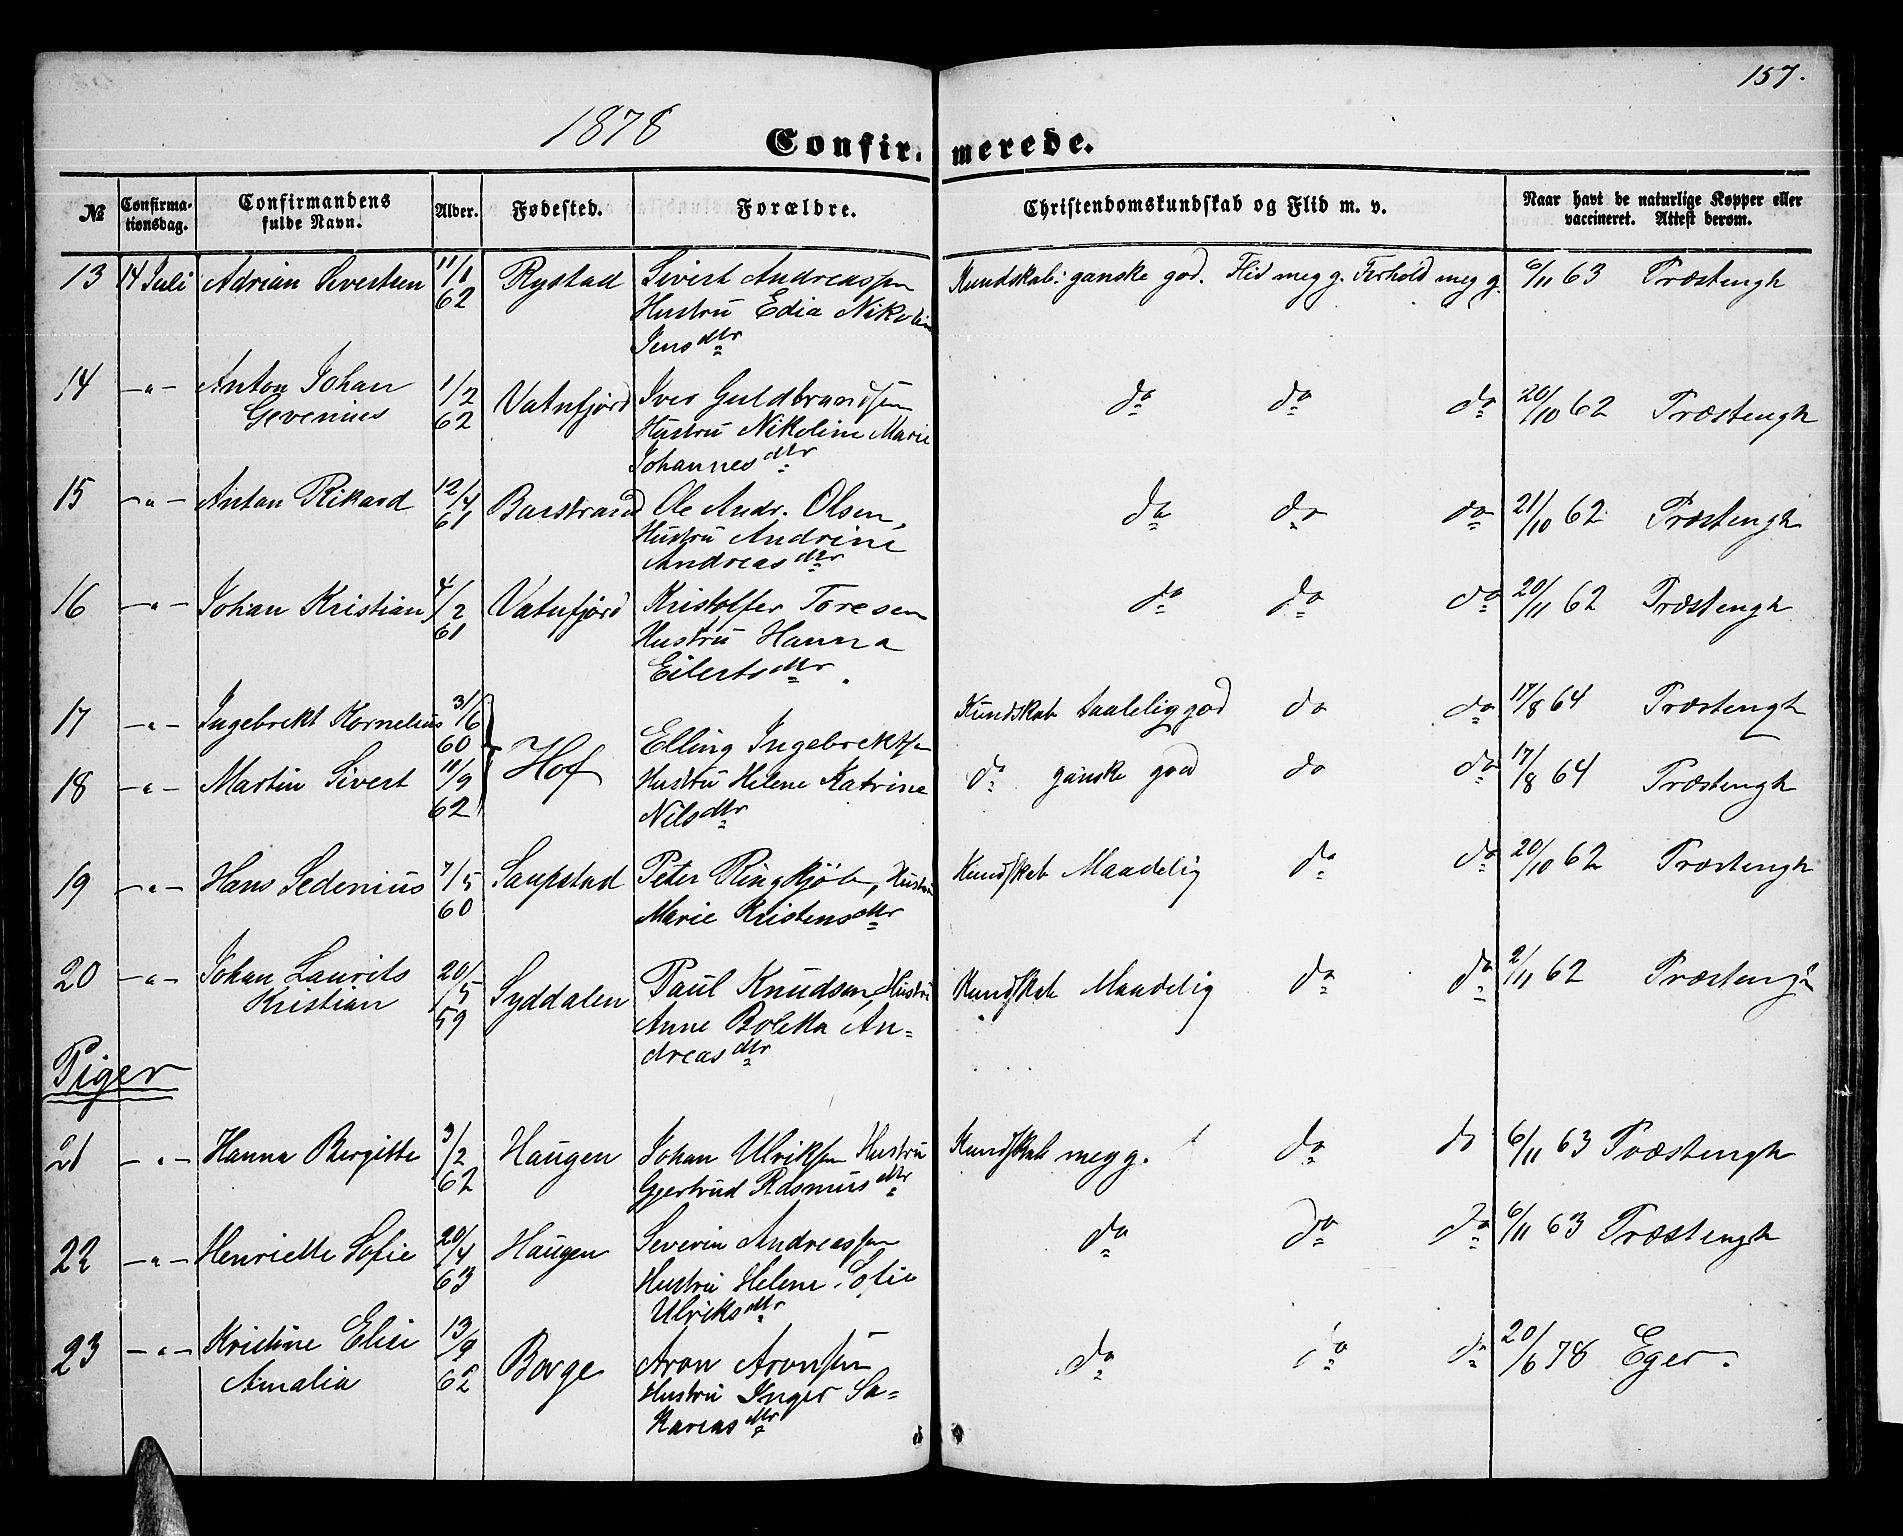 157.
1878
Confirmerede.
№ Confirmationsdag. Confirmandens fulde Navn. Alder. Fødested. Forældre. Christendomskundskab og Flid m. v. Naar havt de naturlige Kopper eller vaccineret. Attest derom.
13 14 Juli Adrian Sivertsen 11/1 62 Rystad Sivert Andreassen Kundskab: ganske god. Flid meg g. Forhold meg g. 6/11 63 Træstengh
Hustru Edia Nikolin
Jensdtr
14 -"- Anton Johan 1/2 62 Vatnfjord Iver Guldbrandsen do do do 20/10 62 Træstengh
Gevenius Hustru Nikoline Marie
Johannesdtr
15 -"- Anton Rikard 12/4 61 Barstrand Ole Andr. Olsen, do do do 21/10 62 Træstengh
Hustru Andrine
Andreasdtr
16 -"- Johan Kristian 4/2 61 Vatnfjord Kristoffer Toresen do do do 20/11 62 Træstengh
Hustru Hanna
Eilertsdtr.
17 -"- Ingebrekt Kornelius 3/6 60 Hof Elling Ingebrektsen Kundskab taalelig god do do 17/8 64 Træstengh
18 -"- Martin Sivert 11/9 62 Hustru Helene Katrine do ganske god do do 17/8 64 Træstengh
Nilsdtr
19 -"- Hans Sedenius 7/5 60 Saupstad Peter Ringkjøb, Hustru Kundskab Maadelig do do 20/10 62 Træstengh
Marie Kristensdtr
20 -"- Johan Laurits 20/5 59 Syddalen Paul Knudsen, Hustru Kundskab Maadelig do do 2/11 62 Træstengh
Kristian Anne Boletta An=
dreasdtr
Piger
21 -"- Hanna Bergitte 3/2 62 Haugen Johan Ulriksen Hustru Kundskab meg g. do do 6/11 63 Træstengh
Gjertrud Rasmusdtr
22 -"- Henriette Sofie 20/4 63 Haugen Severin Andreassen do do do 6/11 63 Træstengh
Hustru Helene Sofie
Ulriksdtr
23 -"- Kristine Elise 13/9 62 Borge Aron Aronsen do do do 20/6 78 Eger.
Amalia Hustru Inger Sa=
kariasdtr